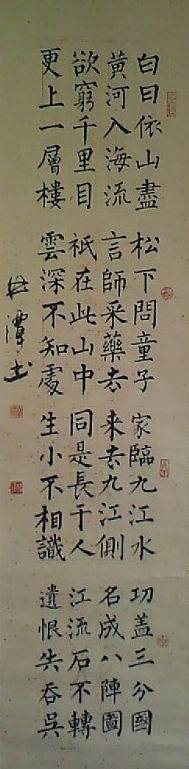 白日依山盡
黃河入海流
欲窮千里目
更上一層樓
松下問童子
言師采藥去
祇在此山中
雲深不知處
家臨九江水
来去九江側
同是長干人
生小不相識
功蓋三分國
名成八陣圖
江流石不轉
遺恨失吞吳
潭书